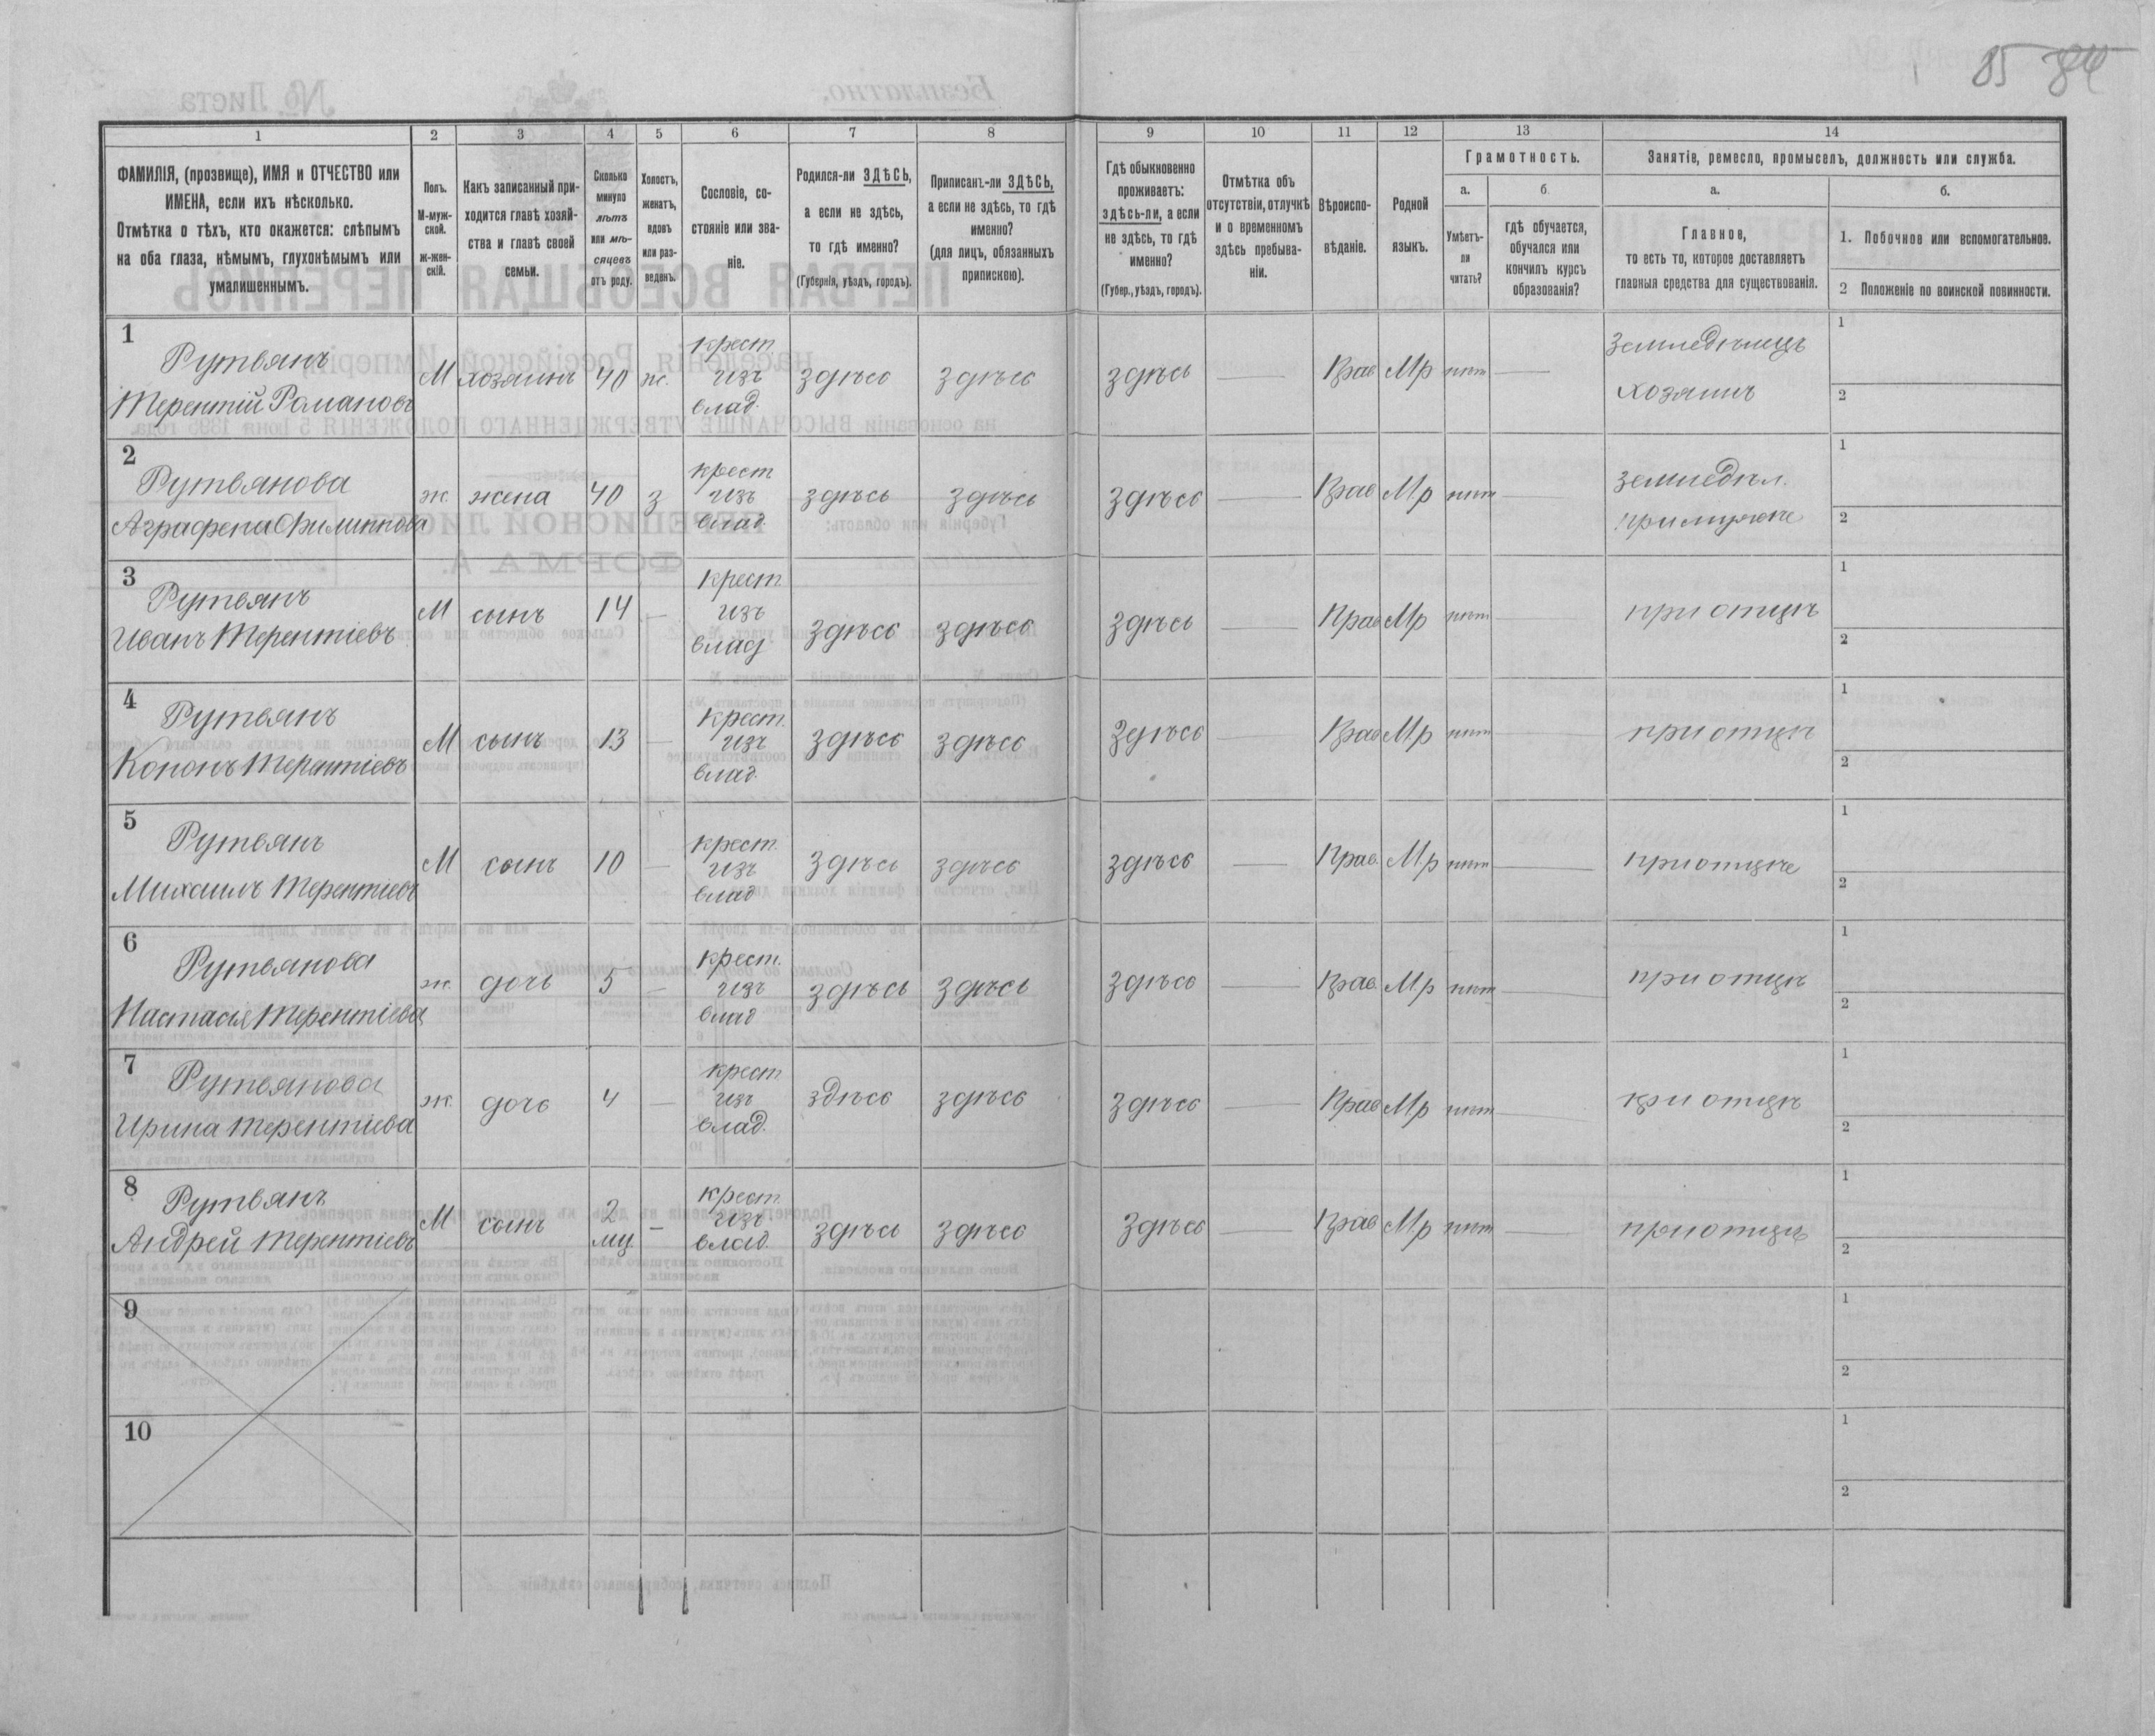 85 84
1
2
3
4
5
6
7
8
9
10
11
12
13
14
ФАМИЛІЯ, (прозвище), ИМЯ и ОТЧЕСТВО или
ИМЕНА, если ихъ нѣсколько.
Отмѣтка о тѣхъ, кто окажется: слѣпымъ
на оба глаза, нѣмымъ, глухонѣмымъ или
умалишеннымъ.
Полъ.
М-муж-
ской.
ж-жен-
скій.
Какъ записанный при-
ходится главѣ хозяй-
ства и главѣ своей
семьи.
Сколько
минуло
лѣтъ
или мѣ-
сяцевъ
отъ роду.
Холостъ,
женатъ,
вдовъ
или раз-
веденъ.
Сословіе, со-
стояніе или зва-
ніе.
Родился-ли ЗДѢСЬ,
а если не здѣсь,
то гдѣ именно?
(Губернія, уѣздъ, городъ).
Приписанъ-ли ЗДѢСЬ,
а если не здѣсь, то гдѣ
именно?
(для лицъ, обязанныхъ
припискою).
Гдѣ обыкновенно
проживаетъ:
здѣсь-ли, а если
не здѣсь, то гдѣ
именно?
(Губер., уѣздъ, городъ).
Отмѣтка объ
отсутствіи, отлучкѣ
и о временномъ
здѣсь пребыва-
ніи.
Вѣроиспо-
вѣданіе.
Родной
языкъ.
Грамотность.
а.
б.
Умѣетъ-
ли
читать?
гдѣ обучается,
обучался или
кончилъ курсъ
образованія?
Занятіе, ремесло, промыселъ, должность или служба.
а.
б.
Главное,
то есть то, которое доставляетъ
главныя средства для существованія.
1. Побочное или вспомогательное.
2 Положеніе по воинской повинности.
1
Рутвянъ
Терентій Романовъ
М хозяинъ 40 ж.
крест
изъ
влад.
здѣсь здѣсь здѣсь — Прав Мр нѣт —
Земледѣлецъ
хозяинъ
1
2
2
Рутвянова
Аграфена Филиппова
ж. жена 40 з
крест
изъ
влад.
здѣсь здѣсь здѣсь — Прав Мр нѣт —
земледѣл.
при мужѣ
1
2
3
Рутвянъ
Иванъ Терентіевъ
М сынъ 14 —
Крест
изъ
влад
здѣсь здѣсь здѣсь — Прав Мр нѣт —
при отцѣ
1
2
4
Рутвянъ
Кононъ Терентіевъ
М сынъ 13 —
Крест.
изъ
влад.
здѣсь здѣсь Здѣсь — Прав Мр нѣт —
при отцѣ
1
2
5
Рутвянъ
Михаилъ Терентіевъ
М сынъ 10 —
крест.
изъ
влад
здѣсь здѣсь здѣсь — Прав. Мр нѣт —
при отцѣ
1
2
6
Рутвянова
Настасія Терентіева
ж. дочь 5 —
крест.
изъ
влад
здѣсь здѣсь здѣсь — Прав. Мр нѣт —
при отцѣ
1
2
7
Рутвянова
Ирина Терентіева
ж. дочь 4 —
крест
изъ
влад.
здѣсь здѣсь здѣсь — Прав Мр нѣт —
при отцѣ
1
2
8
Рутвянъ
Андрей Терентіевъ
М сынъ 2 мц. —
крест
изъ
влад.
здѣсь здѣсь Здѣсь — Прав Мр нѣт —
при отцѣ
1
2
9
1
2
10
1
2